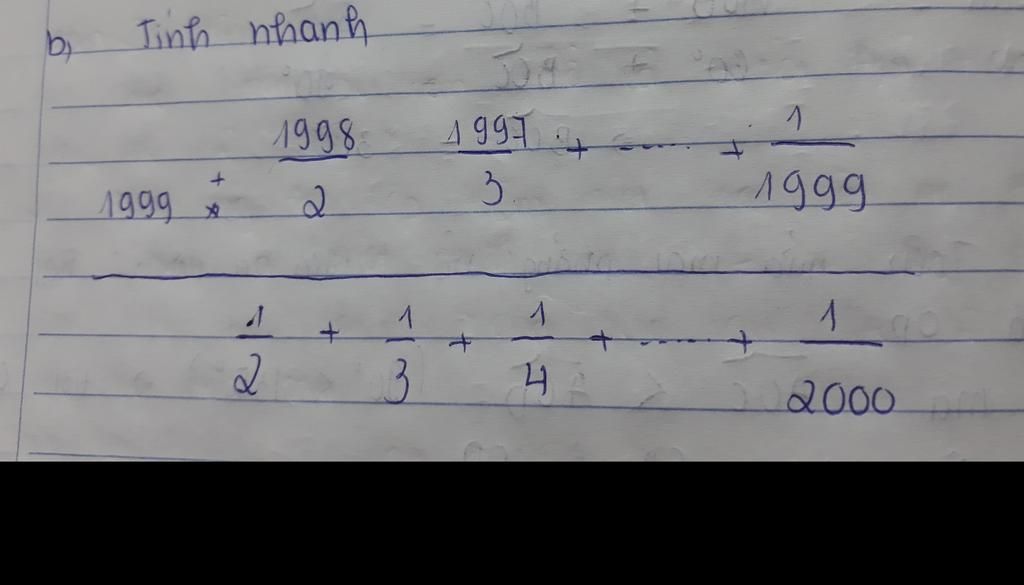 b, Tính nhanh
1999 + 1998/2 1997/3 + ...... + 1/1999
1/2 + 1/3 + 1/4 + ...... + 1/2000